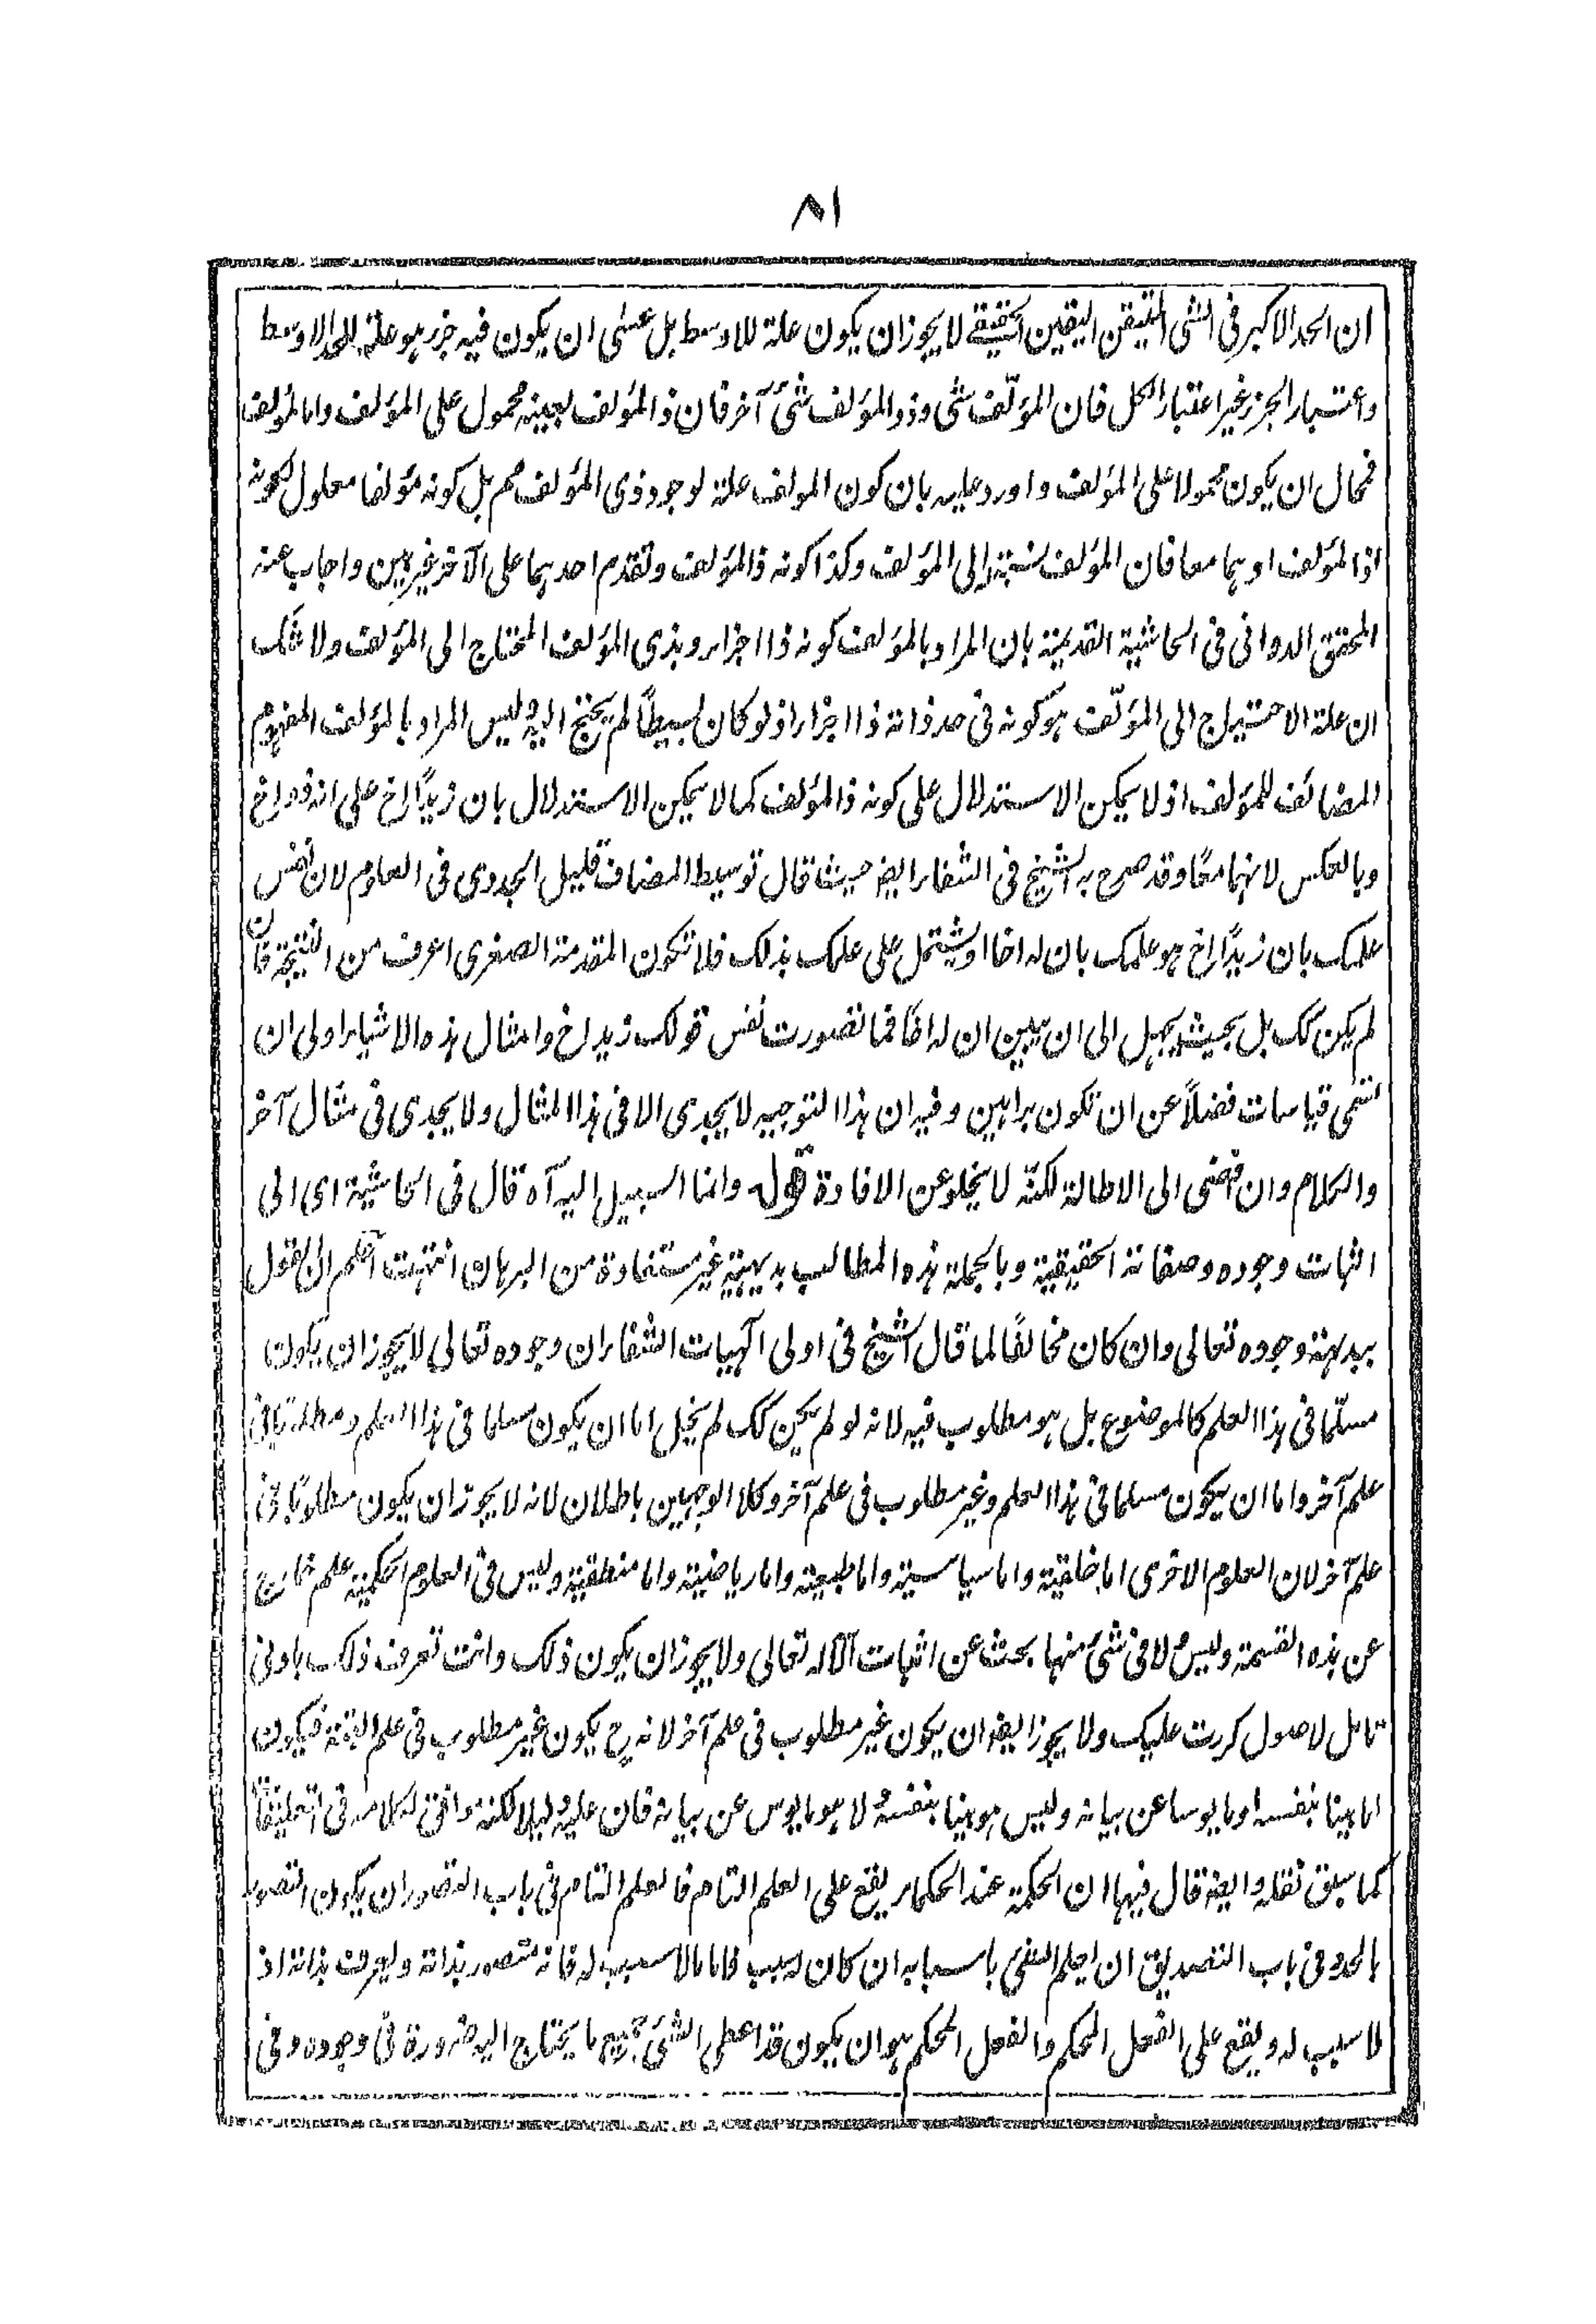 ٨١
ان الحد الاكبر فى الشى المتيقن اليقين الحقيقے لا يجوز ان يكون علة للاوسط بل عسٰى ان يكون فيه جزء هو علة للحد الاوسط
واعتبار الجزء غير اعتبار الكل فان المؤلّف شى وذو المؤلف شىٔ آخر فان ذا المؤلف بعينه محمول على المؤلف واما المؤلف
فمحال ان يكون محمولا على المؤلف واورد عليه بان كون المولف علة لوجود ذى المؤلف مم بل كونه مؤلفا معلول لكونه
ذا المؤلف او هما معا فان المؤلف نسبة الى المؤلف وكذا كونه ذا المؤلف وتقدم احدهما على الآخر غير بين واجاب عنه
المحقق الدوانى فى الحاشية القديمة بان المراد بالمؤلف كونه ذا اجزاء وبذى المؤلف المحتاج الى المؤلف ولا شك
ان علة الاحتياج الى المؤلّف هو كونه فى حد ذاته ذا اجزاء اذ لو كان بسيطاً لم يحتج اليه وليس المراد بالمؤلف المفهوم
المضائف للمؤلف اذ لا يمكن الاستدلال على كونه ذا المؤلف كما لا يمكن الاستدلال بان زيدًا اخ على انه ذو اخ
وبالعكس لانهما معًا وقد صرح به الشيخ فى الشفاء ايضا حيث قال توسيط المضاف قليل الجدوى فى العلوم لان نفس
علمك بان زيدًا اخ هو علمك بان له اخا او يشتمل على علمك بذلك فلا تكون المقدمة الصغرى اعرف من النتيجة فان
لم يكن كك بل بحيث يجهل الى ان يبين ان له اخًا فما تصورت نفس قولك زيد اخ وامثال هذه الاشياء اولى ان
تسمى قياسات فضلاً عن ان تكون براهين وفيه ان هذا التوجيه لا يجدى الا فى هذا المثال ولا يجدى فى مثال آخر
والكلام وان افضى الى الاطالة لكنّه لا يخلو عن الافادة قوله وانما السبيل اليه آه قال فى الحاشية اى الى
اثبات وجوده وصفاته الحقيقية وبالجملة هذه المطالب بديهية غير مستفادة من البرهان انتهت اعلم ان القول
ببديهة وجوده تعالى وان كان مخالفًا لما قال الشيخ فى اولى آلهيات الشفاء ان وجوده تعالى لا يجوز ان يكون
مسلّما فى هذا العلم كالموضوع بل هو مطلوب فيه لانه لو لم يكن كك لم يخل اما ان يكون مسلما فى هذا العلم ومطلوبا فى
علم آخر واما ان يكون مسلما فى هذا العلم وغير مطلوب فى علم آخر وكلا الوجهين باطلان لانه لا يجوز ان يكون مطلوبًا فى
علم آخر لان العلوم الاخرى اما خلقية واما سياسية واما طبيعية واما رياضية واما منطقية وليس فى العلوم الحكمية علم خارج
عن هذه القسمة وليس ولا فى شىٔ منها بحث عن اثبات الآله تعالى ولا يجوز ان يكون ذلك وانت تعرف ذلك باونى
تامل لاصول كررت عليك ولا يجوز ايضا ان يكون غير مطلوب فى علم آخر لانه ح يكون غير مطلوب فى علم البتة فيكون
اما بينا بنفسه او مايوسا عن بيانه وليس هو بينا بنفسه ولا هو مايوس عن بيانه فان عليه دليلا لكنه وافق لكلامه فى التعليقات
كما سبق نقله وايضا قال فيها ان الحكمة عند الحكماء يقع على العلم التام فالعلم التام فى باب التصور ان يكون التصور
بالحد وفى باب التصديق ان يعلم الشى باسبابه ان كان له سبب فاما مالا سبب له فانه متصور بذاته ويعرف بذاته اذ
لا سبب له ويقع على الفعل المحكم والفعل المحكم هو ان يكون قد اعطى الشىٔ جميع ما يحتاج اليه ضرورة فى وجوده وفى